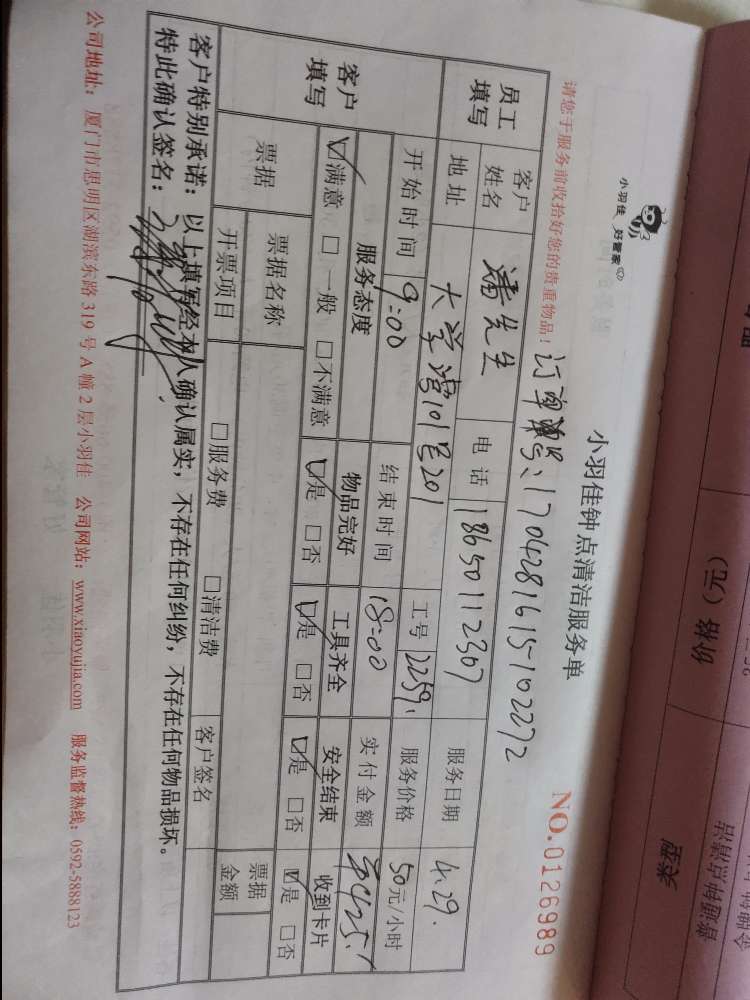 小羽佳 好管家
小羽佳钟点清洁服务单
请您于服务前收拾好您的贵重物品！
订单编号：1704281615-102272
NO.0126989
员工填写
客户姓名 潘先生 电话 18650112307 服务日期 4.29.
地址 大学湾101号201 工号 2259. 服务价格 50元/小时
客户填写
开始时间 9:00 结束时间 18:00 实付金额
服务态度 物品完好 工具齐全 安全结束 收到卡片
☑满意 □一般 □不满意 ☑是 □否 ☑是 □否 ☑是 □否 ☑是 □否
票据 票据名称 票据金额
开票项目 □服务费 □清洁费 客户签名
客户特别承诺：以上填写经本人确认属实，不存在任何纠纷，不存在任何物品损坏。
特此确认签名：
公司地址：厦门市思明区湖滨东路 319 号 A 幢 2 层小羽佳 公司网站：www.xiaoyujia.com 服务监督热线：0592-5888123
价格（元）